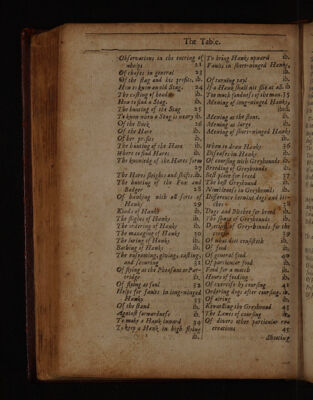 The Table.
Observations in the entring of
whelps 22
Of chases in general 23
Of the stag and his profits. ib.
How to know an old Stag. 24
The casting of heads ib.
How to find a Stag. ib.
The hunting of the Stag 25
To know when a Stag is weary ib.
Of the Buck 26
Of the Hare ib.
Of her profits ib.
The hunting of the Hare ib.
Where to find Hares ib.
The knowledg of the Hares form
27
The Hares sleights and shifts. ib.
The hunting of the Fox and
Badger 28
Of hawking with all sorts of
Hawks 29
Kinds of Hawks ib.
The flights of Hawks ib.
The ordering of Hawks ib.
The managing of Hawks 30
The luring of Hawks ib.
Bathing of Hawks ib.
and scouring 31
Of flying at the Pheasant or Par-
tridge ib.
Of flying at fowl 32
Helps for faults in long-winged
Hawks ib.
Of the stand ib.
Against ib.
To make a Hawk inward 34
To keep a Hawk in high flying
ib.
To bring Hawks upward ib.
Faults in short-winged Hawks,
ib.
Of turning tayl ib.
If a Hawk shall not flie at all ib.
Too much fondness of the man. 35
Mewing of long-winged Hawks,
ib.
Mewing at the stone. ib.
Mewing at large ib.
Mewing of short-winged Hawks
ib.
When to draw Hawks 36
Diseases in Hawks. ib.
Of coursing with Greyhounds. ib.
Breeding of Greyhounds ib.
Best place for breed 37
The best Greyhound ib.
Nimbleness in Greyhounds ib.
Difference betwixt dogs and bit-
ches 38
Dogs and Bitches for breed ib.
The shape of Greyhounds ib.
of Greyhounds for the
39
Of what diet consisteth ib.
Of food ib.
Of general food 40
Of particular food ib.
Food for a match ib.
Hours of feeding ib.
Of exercise by coursing 42
Ordering dogs after coursing. ib.
Of airing ib.
Kennelling the Greyhound 43
The Lawes of coursing ib.
Of divers other particular re-
creations 45
Shooting